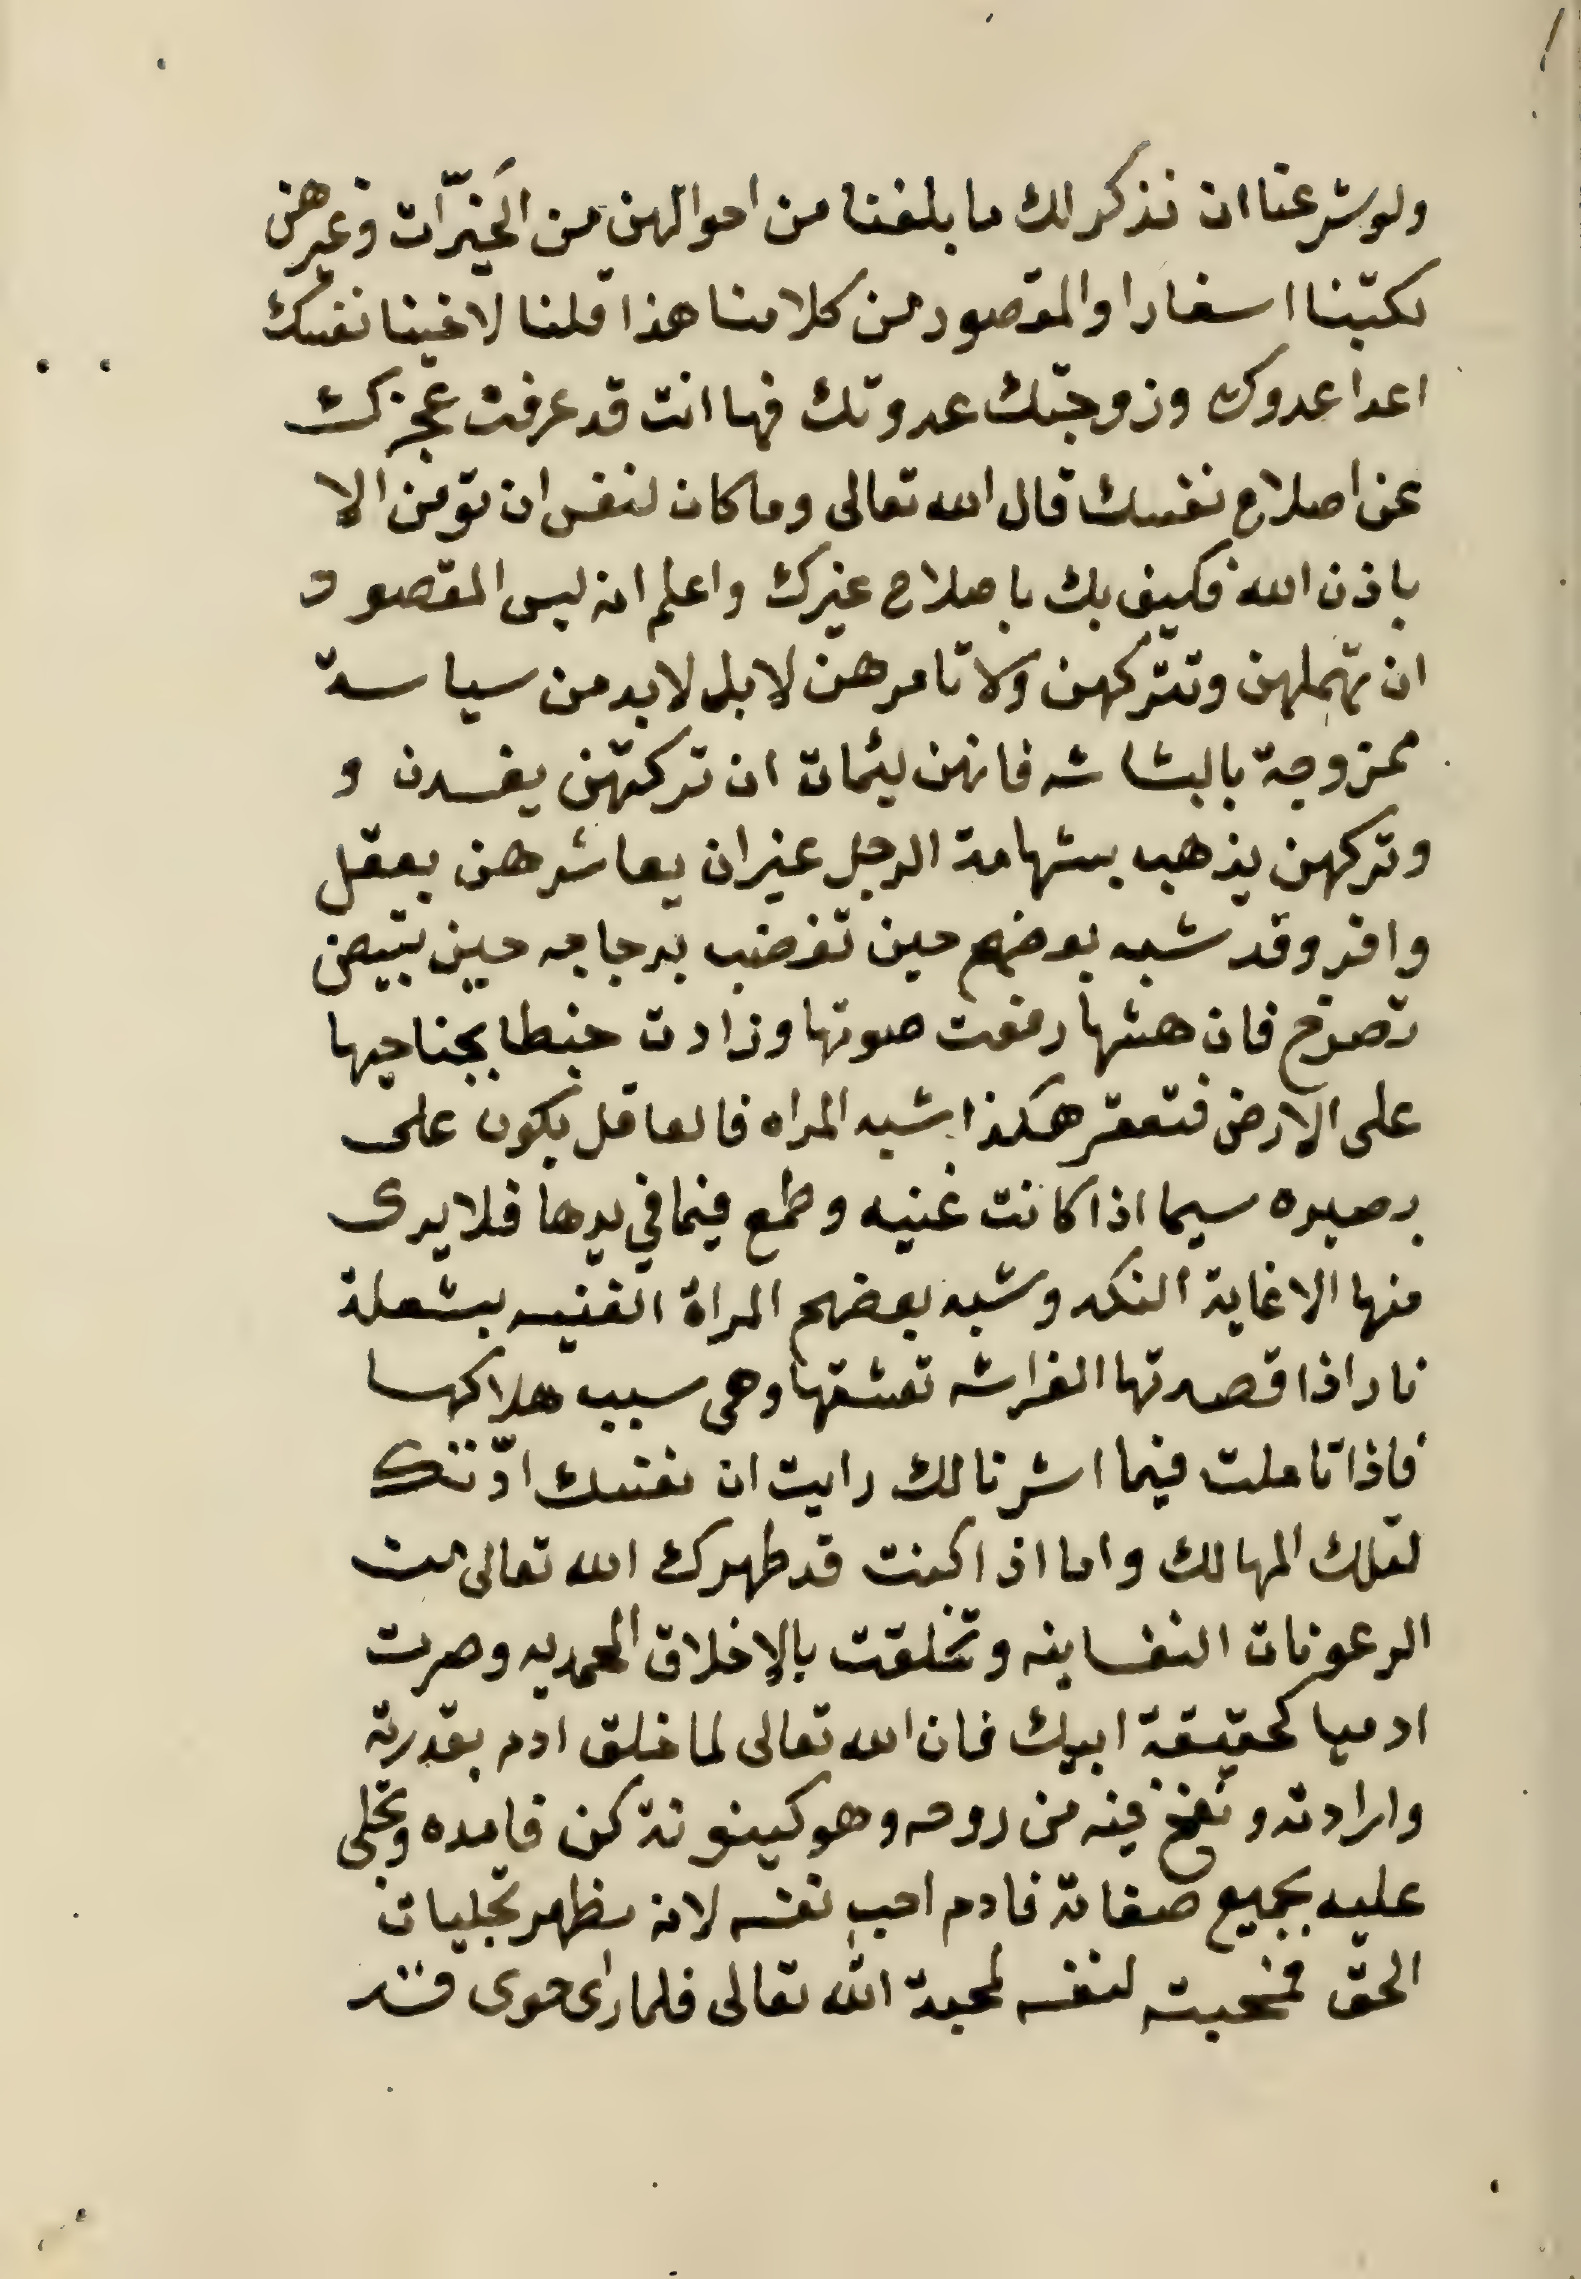 ولو شرعنا ان نذكر لك ما بلغنا من احوالهن من الخيّرات وغيرهن
لكتبنا اسفارا والمقصود من كلامنا هذا قلنا لاخينا نفسك
اعدا عدوك وزوجتك عدوتك فها انت قد عرفت عجزك
عن اصلاح نفسك قال الله تعالى وما كان لنفس ان تومن الا
باذن الله فكيف بك باصلاح غيرك واعلم انه ليس المقصود
ان تهملهن وتتركهن ولا تامرهن لا بل لا بد من سياسة
ممزوجة بالبشاشه فانهن ليئمات ان تركتهن يفسدن و
وتركهن يذهب بشهامة الرجل غير ان يعاشرهن بعقل
وافر وقد شبه بعضهم حين تغضب بدجاجه حين تبيض
تصرخ فان هشها رفعت صوتها وزادت خبطا بجناحيها
على الارض فتعقر هكذا شبه المراه فالعاقل يكون على
بصيره سيما اذا كانت غنيه وطمع فيما في يدها فلا يرى
منها الا غاية النكد وشبه بعضهم المراة الغنيه بشعلة
نار اذا قصدتها الفراشه تعشقها وهى سبب هلاكها
فاذا تاملت فيما اشرنا لك رايت ان نفسك ادّتك
لتلك المهالك واما اذا كنت قد طهرك الله تعالى من
الرعونات النفسانيه وتخلقت بالاخلاق المحمديه وصرت
ادميا كحقيقة ابيك فان الله تعالى لما خلق ادم بقدرته
وارادته ونفخ فيه من روحه وهو كينونة كن فامده وتجلى
عليه بجميع صفاته فادم احب نفسه لانه مظهر تجليات
الحق فمحبته لنفسه لمحبة الله تعالى فلما راى حوى قد